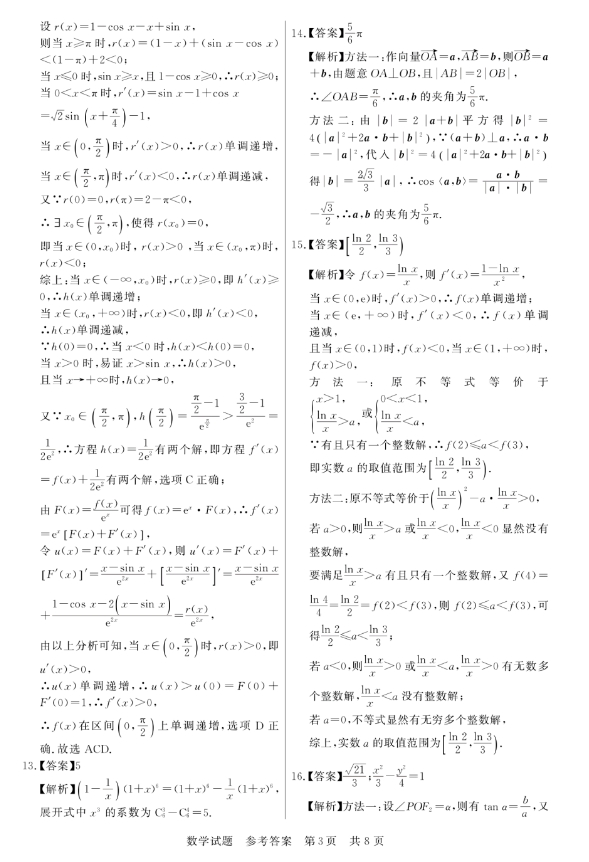 设 r(x)=1−cos x−x+sin x,
则当 x⩾π 时,r(x)=(1−x)+(sin x−cos x)
<(1−π)+2<0;
当 x⩽0 时,sin x⩾x,且 1−cos x⩾0,∴r(x)⩾0;
当 0<x<π 时,r′(x)=sin x−1+cos x
=√2 sin (x+π/4)−1,
当 x∈(0,π/2)时,r′(x)>0,∴r(x)单调递增,
当 x∈(π/2,π)时,r′(x)<0,∴r(x)单调递减,
又∵r(0)=0,r(π)=2−π<0,
∴∃x₀∈(π/2,π),使得 r(x₀)=0,
即当 x∈(0,x₀)时, r(x)>0 ,当 x∈(x₀,π)时,
r(x)<0;
综上:当 x∈(−∞,x₀)时,r(x)⩾0,即 h′(x)⩾
0,∴h(x)单调递增;
当 x∈(x₀,+∞)时,r(x)<0,即 h′(x)<0,
∴h(x)单调递减,
∵h(0)=0,∴当 x<0 时,h(x)<h(0)=0,
当 x>0 时,易证 x>sin x,∴h(x)>0,
且当 x→+∞时,h(x)→0,
又∵x₀∈(π/2,π),h(π/2)=(π/2−1)/e^(π/2)>(3/2−1)/e²=
1/2e²,∴方程 h(x)=1/2e²有两个解,即方程 f′(x)
=f(x)+1/2e²有两个解,选项 C 正确;
由 F(x)=f(x)/eˣ可得 f(x)=eˣ·F(x),∴f′(x)
=eˣ[F(x)+F′(x)],
令 u(x)=F(x)+F′(x),则 u′(x)=F′(x)+
[F′(x)]′=(x−sin x)/e²ˣ+[(x−sin x)/e²ˣ]′=(x−sin x)/e²ˣ
+(1−cos x−2(x−sin x))/e²ˣ=r(x)/e²ˣ,
由以上分析可知,当 x∈(0,π/2)时,r(x)>0,即
u′(x)>0,
∴u(x)单调递增,∴u(x)>u(0)=F(0)+
F′(0)=1,∴f′(x)>0,
∴f(x)在区间(0,π/2)上单调递增,选项 D 正
确.故选 ACD.
13.【答案】5
【解析】(1−1/x)(1+x)⁶=(1+x)⁶−1/x(1+x)⁶,
展开式中 x³ 的系数为 C₆³−C₆⁴=5.
14.【答案】5/6π
【解析】方法一:作向量OA→=a,AB→=b,则OB→=a
+b,由题意 OA⊥OB,且|AB|=2|OB|,
∴∠OAB=π/6,∴a,b 的夹角为5/6π.
方法二:由 |b|=2|a+b|平方得|b|²=
4(|a|²+2a·b+|b|²),∵(a+b)⊥a,∴a·b
=−|a|²,代入|b|²=4(|a|²+2a·b+|b|²)
得|b|=2√3/3|a|,∴cos⟨a,b⟩=a·b/|a|·|b|=
−√3/2,∴a,b 的夹角为5/6π.
15.【答案】[ln 2/2,ln 3/3)
【解析】令 f(x)=ln x/x,则 f′(x)=(1−ln x)/x²,
当 x∈(0,e)时,f′(x)>0,∴f(x)单调递增;
当 x∈(e,+∞)时,f′(x)<0,∴f(x)单调
递减,
且当 x∈(0,1)时,f(x)<0,当 x∈(1,+∞)时,
f(x)>0,
方法一:原不等式等价于
{x>1, ln x/x>a, 或{0<x<1, ln x/x<a,
∵有且只有一个整数解,∴f(2)⩽a<f(3),
即实数 a 的取值范围为[ln 2/2,ln 3/3).
方法二:原不等式等价于(ln x/x)²−a·ln x/x>0,
若 a>0,则ln x/x>a 或ln x/x<0,ln x/x<0 显然没有
整数解,
要满足ln x/x>a 有且只有一个整数解,又 f(4)=
ln 4/4=ln 2/2=f(2)<f(3),则 f(2)⩽a<f(3),可
得ln 2/2⩽a<ln 3/3;
若 a<0,则ln x/x>0 或ln x/x<a,ln x/x>0 有无数多
个整数解,ln x/x<a 没有整数解;
若 a=0,不等式显然有无穷多个整数解,
综上,实数 a 的取值范围为[ln 2/2,ln 3/3).
16.【答案】√21/3;x²/3−y²/4=1
【解析】方法一:设∠POF₂=α,则有 tan α=b/a,又
数学试题 参考答案 第3页 共8页